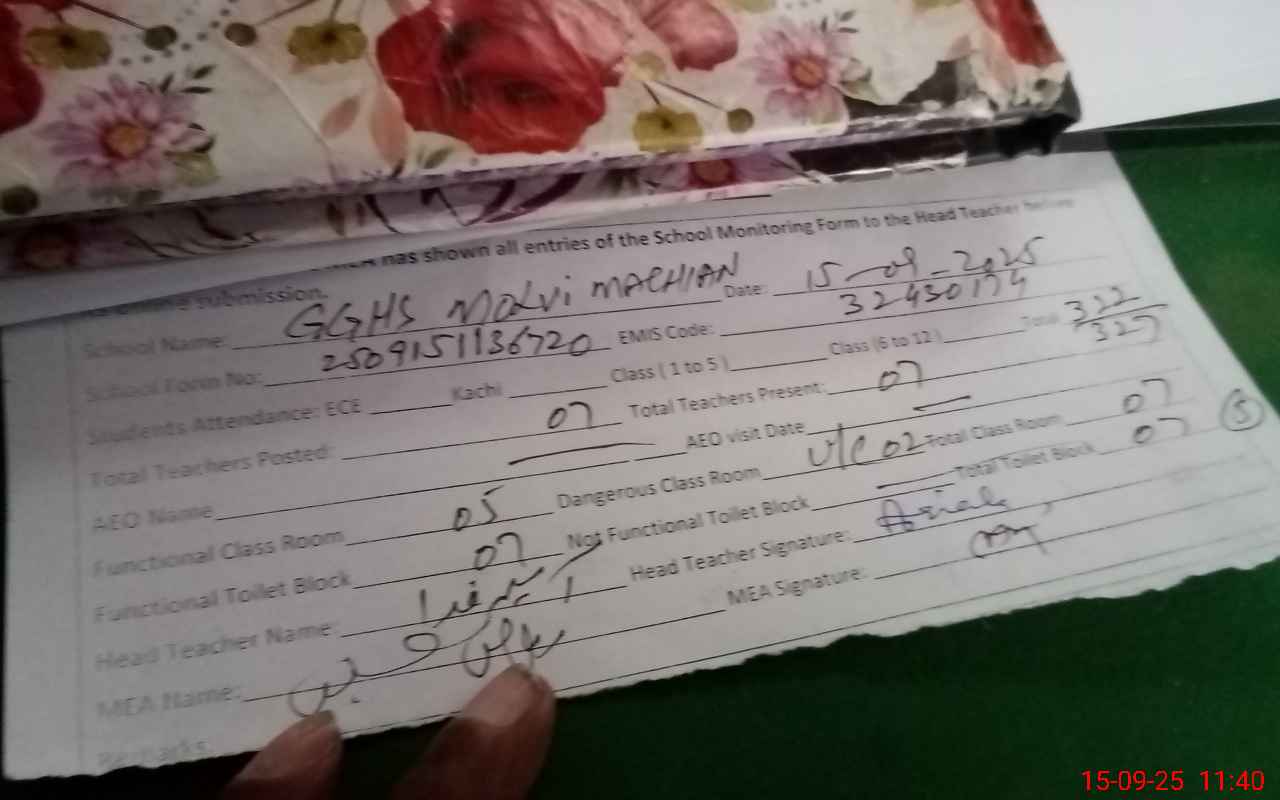 has shown all entries of the School Monitoring Form to the Head Teacher before
submission.
School Name: GGHS Molvi MACHIAN Date: 15-09-2025
School Form No: 2509151136720 EMIS Code: 32430174
Students Attendance: ECE Kachi Class ( 1 to 5 ) Class (6 to 12 ) Total 322/327
Total Teachers Posted: 07 Total Teachers Present: 07
AEO Name AEO visit Date
Functional Class Room 05 Dangerous Class Room U/C 02 Total Class Room 07
Functional Toilet Block 07 Not Functional Toilet Block Total Toilet Block 07 (5)
Head Teacher Name: Head Teacher Signature:
MEA Name: MEA Signature:
Remarks:
15-09-25 11:40